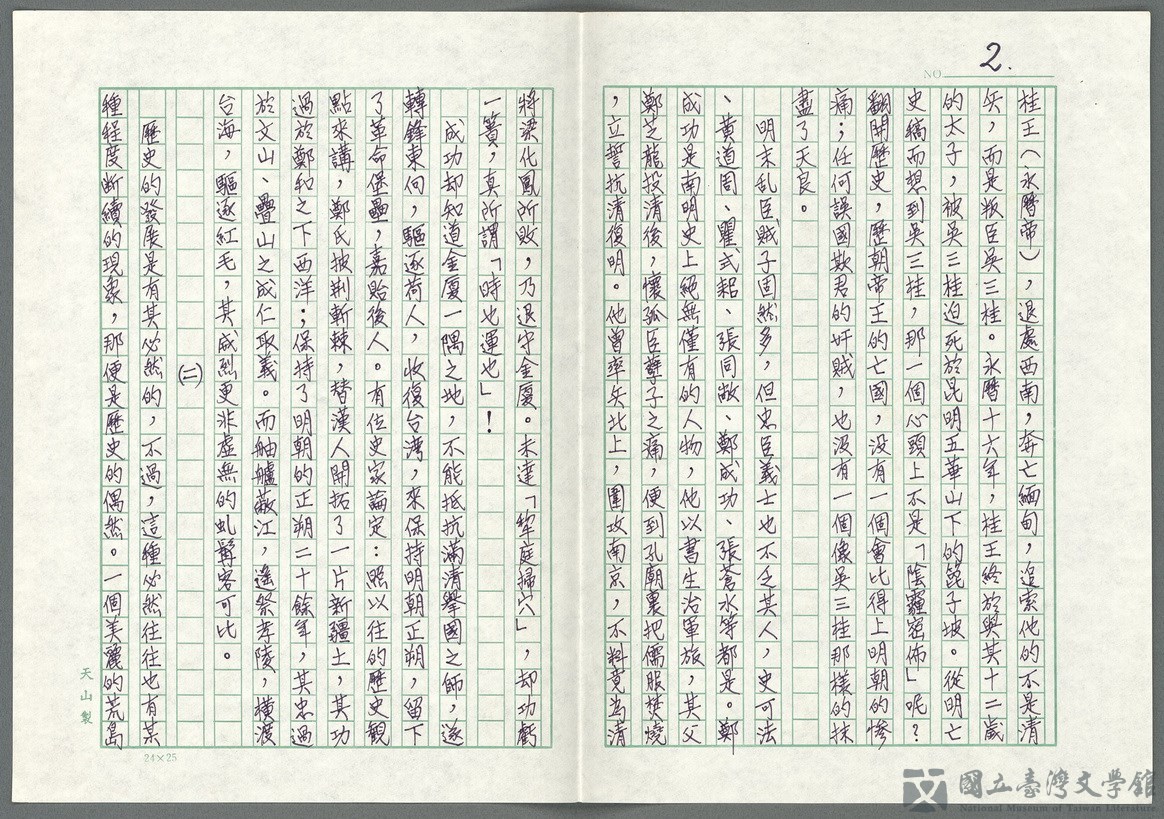 NO 2.
桂王(永曆帝),退處西南,奔亡緬甸,追索他的不是清
兵,而是叛臣吳三桂。永曆十六年,桂王終於與其十二歲
的太子,被吳三桂迫死於昆明五華山下的篦子坡。從明亡
史稿而想到吳三桂,那一個心頭上不是「陰霾密佈」呢?
翻開歷史,歷朝帝王的亡國,沒有一個會比得上明朝的慘
痛;任何誤國欺君的奸賊,也沒有一個像吳三桂那樣的抹
盡了天良。
明末乱臣賊子固然多,但忠臣義士也不乏其人,史可法
、黃道周、瞿式耜、張同敞、鄭成功、張蒼水等都是。鄭
成功是南明史上絕無僅有的人物,他以書生治軍旅,其父
鄭芝龍投清後,懷孤臣孽子之痛,便到孔廟裏把儒服焚燒
,立誓抗清復明。他曾率兵北上,圍攻南京,不料竟為清
將梁化鳳所敗,乃退守金廈。未達「犂庭掃穴」,却功虧
一簣,真所謂「時也運也」!
成功却知道金廈一隅之地,不能抵抗滿清舉國之師,遂
轉鋒東向,驅逐荷人,收復台湾,來保持明朝正朔,留下
了革命堡壘,嘉貽後人。有位史家論定:照以往的歷史觀
點來講,鄭氏披荆斬棘,替漢人開拓了一片新疆土,其功
過於鄭和之下西洋;保持了明朝的正朔二十餘年,其忠過
於文山、疊山之成仁取義。而舳艫蔽江,遙祭孝陵,橫渡
台海,驅逐紅毛,其威烈更非虛無的虬髯客可比。
(二)
歷史的發展是有其必然的,不過,這種必然往往也有某
種程度断續的現象,那便是歷史的偶然。一個美麗的荒島
天山製
24×25
國立臺灣文學館
National Museum of Taiwan Literature